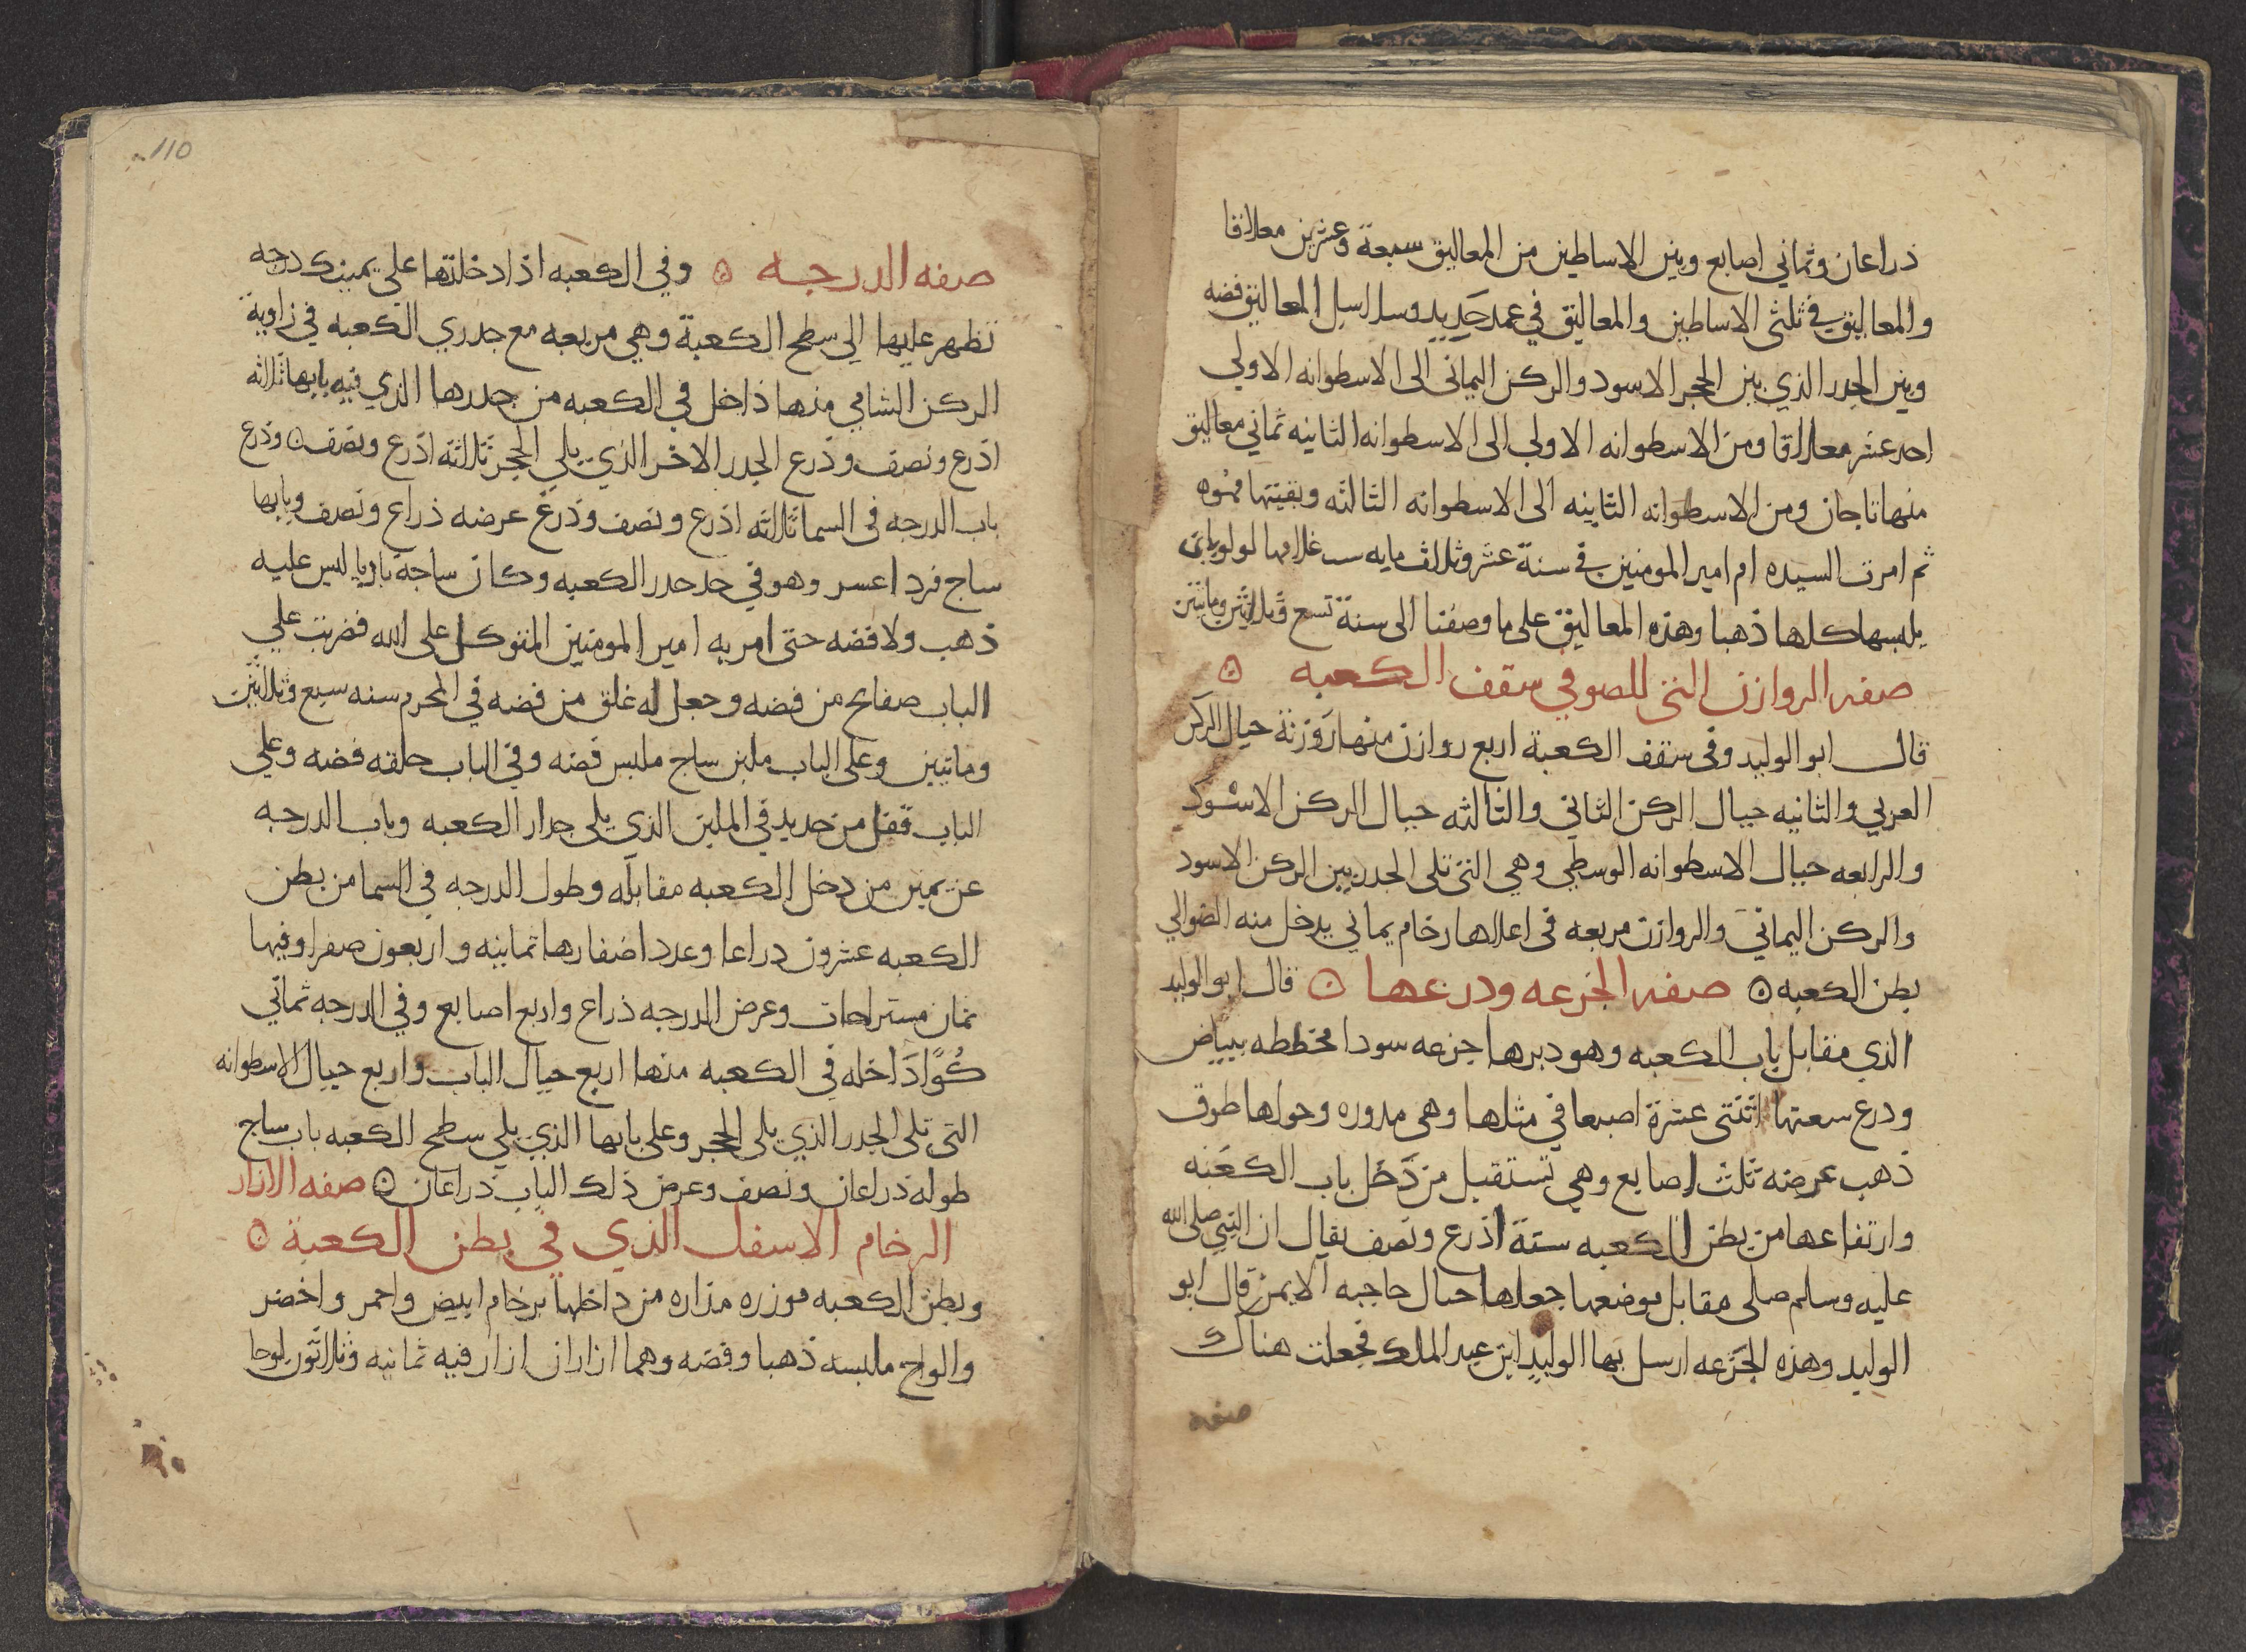 ذراعان وثماني اصابع وبين الاساطين من المعاليق سبعة وعشرين معلاقا
والمعاليق في ثلثى الاساطين والمعاليق في عمد حَدِيدٍ وسلاسل المعاليق فضه
وبين الجدر الذي بين الحجر الاسود والركن اليمانى الى الاسطوانه الاولي
احد عشر معلاقا ومن الاسطوانه الاولى الى الاسطوانه الثانيه ثماني معاليق
منها تاجان ومن الاسطوانه الثانيه الى الاسطوانه الثالثه وبقيتها مموه
ثم امرت السيده ام امير المومنين في سنة عشر وثلاث مايه غلامها لولو بان
يلبسها كلها ذهبا وهذه المعاليق على ما وصفنا الى سنة تسع وثلاثين ومايتين
صفه الروازن التى للضو في سقف الكعبه ۞
قال ابو الوليد وفى سقف الكعبة اربع روازن منها رَوْزنة حيال الركن
الغربي والثانيه حيال الركن الثاني والثالثه حيال الركن الاسود
والرابعه حيال الاسطوانه الوسطي وهي التى تلى الجدر بين الركن الاسود
والركن اليماني والروازن مربعه فى اعلاها رخام يماني يدخل منه الضو الي
بطن الكعبه ۞ صفه الجزعه وذرعها ۞ قال ابو الوليد
الذي مقابل باب الكعبه وهو دبرها جزعه سودا مخططه ببياض
وذرع سعتها اثنتى عشرة اصبعا في مثلها وهى مدوره وحولها طوق
ذهب عرضه ثلث اصابع وهي تستقبل من دَخَل باب الكعبه
وارتفاعها من بطن الكعبه ستة اذرع ونصف يقال ان النبي صلى الله
عليه وسلم صلى مقابل موضعها جعلها حيال حاجبه الايمن قال ابو
الوليد وهذه الجَزعه ارسل بها الوليد ابن عبد الملك فجعلت هناك
صفه
110
صفه الدرجه ۞ وفي الكعبه اذا دخلتها على يمينك درجه
تظهر عليها الي سطح الكعبة وهي مربعه مع جدري الكعبه في زاوية
الركن الشامي منها داخل في الكعبه من جدرها الذي فيه بابها ثلاثه
اذرع ونصف وذرع الجدر الاخر الذي يلي الحجر ثلاثة اذرع ونصف ۞ وذرع
باب الدرجه فى السما ثلاثه اذرع ونصف وذرع عرضه ذراع ونصف وبابها
ساج فرد اعسر وهو في حد جدر الكعبه وكان ساجة باديا ليس عليه
ذهب ولا فضه حتى امر به امير المومنين المتوكل على الله فضربت علي
الباب صفايح من فضه وجعل له غلق من فضه في المحرم سنه سبع وثلاثين
ومايتين وعلى الباب ملبن ساج ملبس فضه وفي الباب حلقه فضه وعلي
الباب قفل من حديد في الملبن الذي يلى جدار الكعبه وباب الدرجه
عن يمين من دخل الكعبه مقابله وطول الدرجه في السما من بطن
الكعبه عشرون ذراعا وعدد اضفارها ثمانيه واربعون صفرا وفيها
ثمان مستراحات وعرض الدرجه ذراع واربع اصابع وفي الدرجه ثماني
كُوًا دَاخله في الكعبه منها اربع حيال الباب واربع حيال الاسطوانه
التي تلى الجدر الذي يلى الحجر وعلى بابها الذي يلي سطح الكعبه باب ساج
طوله ذراعان ونصف وعرض ذلك الباب ذراعان ۞ صفه الازار
الرخام الاسفل الذي في بطن الكعبة ۞
وبطن الكعبه موزره مداره من داخلها برخام ابيض واحمر واخضر
والواح ملبسه ذهبا وفضه وهما ازاران ازار فيه ثمانيه وثلاثون لوحا